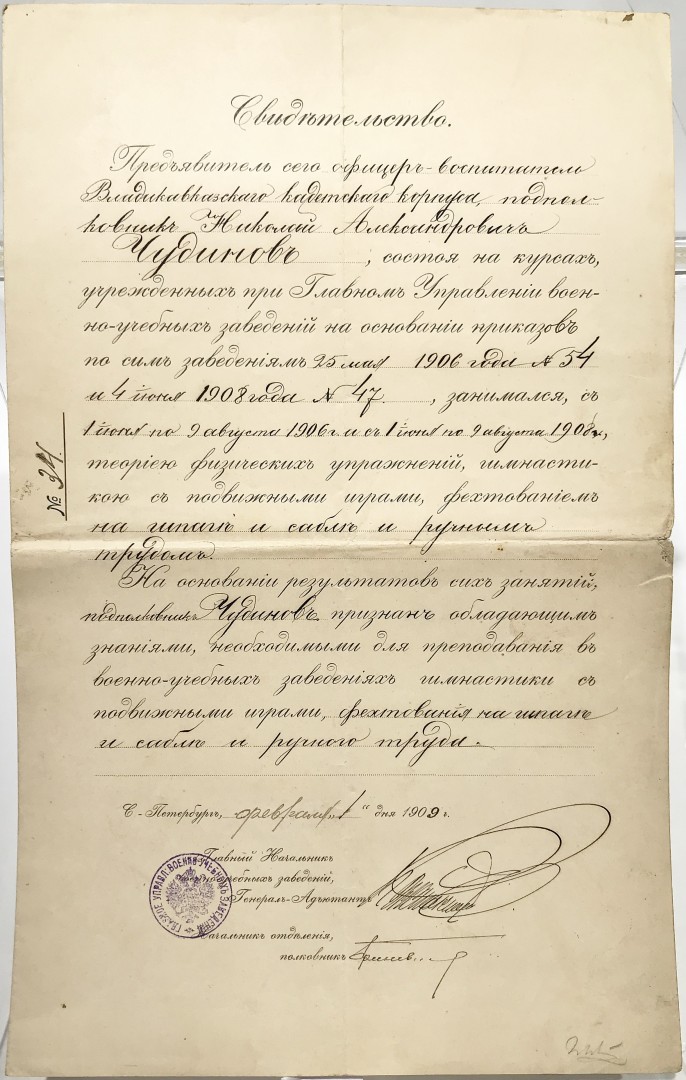 Свидѣтельство.
Предъявитель сего офицеръ-воспитатель
Владикавказскаго кадетскаго корпуса, подпол-
ковникъ Николай Александровичъ
Чудиновъ, состоя на курсахъ,
учрежденныхъ при Главномъ Управленіи воен-
но-учебныхъ заведеній на основаніи приказовъ
по симъ заведеніямъ 25 мая 1906 года № 54
и 4 іюня 1908 года № 47., занимался, съ
1 іюня по 9 августа 1906 г. и съ 1 іюня по 9 августа 1908 г.,
теоріею физическихъ упражненій, гимнасти-
кою съ подвижными играми, фехтованіемъ
на шпагѣ и саблѣ и ручнымъ
трудомъ.
На основаніи результатовъ сихъ занятій,
подполковникъ Чудиновъ признанъ обладающимъ
знаніями, необходимыми для преподаванія въ
военно-учебныхъ заведеніяхъ гимнастики съ
подвижными играми, фехтованія на шпагѣ
и саблѣ и ручного труда.
С.-Петербургъ, февраля „1“ дня 1909 г.
Главный Начальникъ
военно-учебныхъ заведеній,
Генералъ-Адъютантъ
Начальникъ отдѣленія,
полковникъ
№ 94.
ГЛАВНОЕ УПРАВЛ. ВОЕННО-УЧЕБНЫХЪ ЗАВЕДЕНІЙ